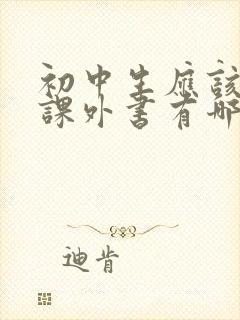 初中生應該
課外書有哪
迪肯